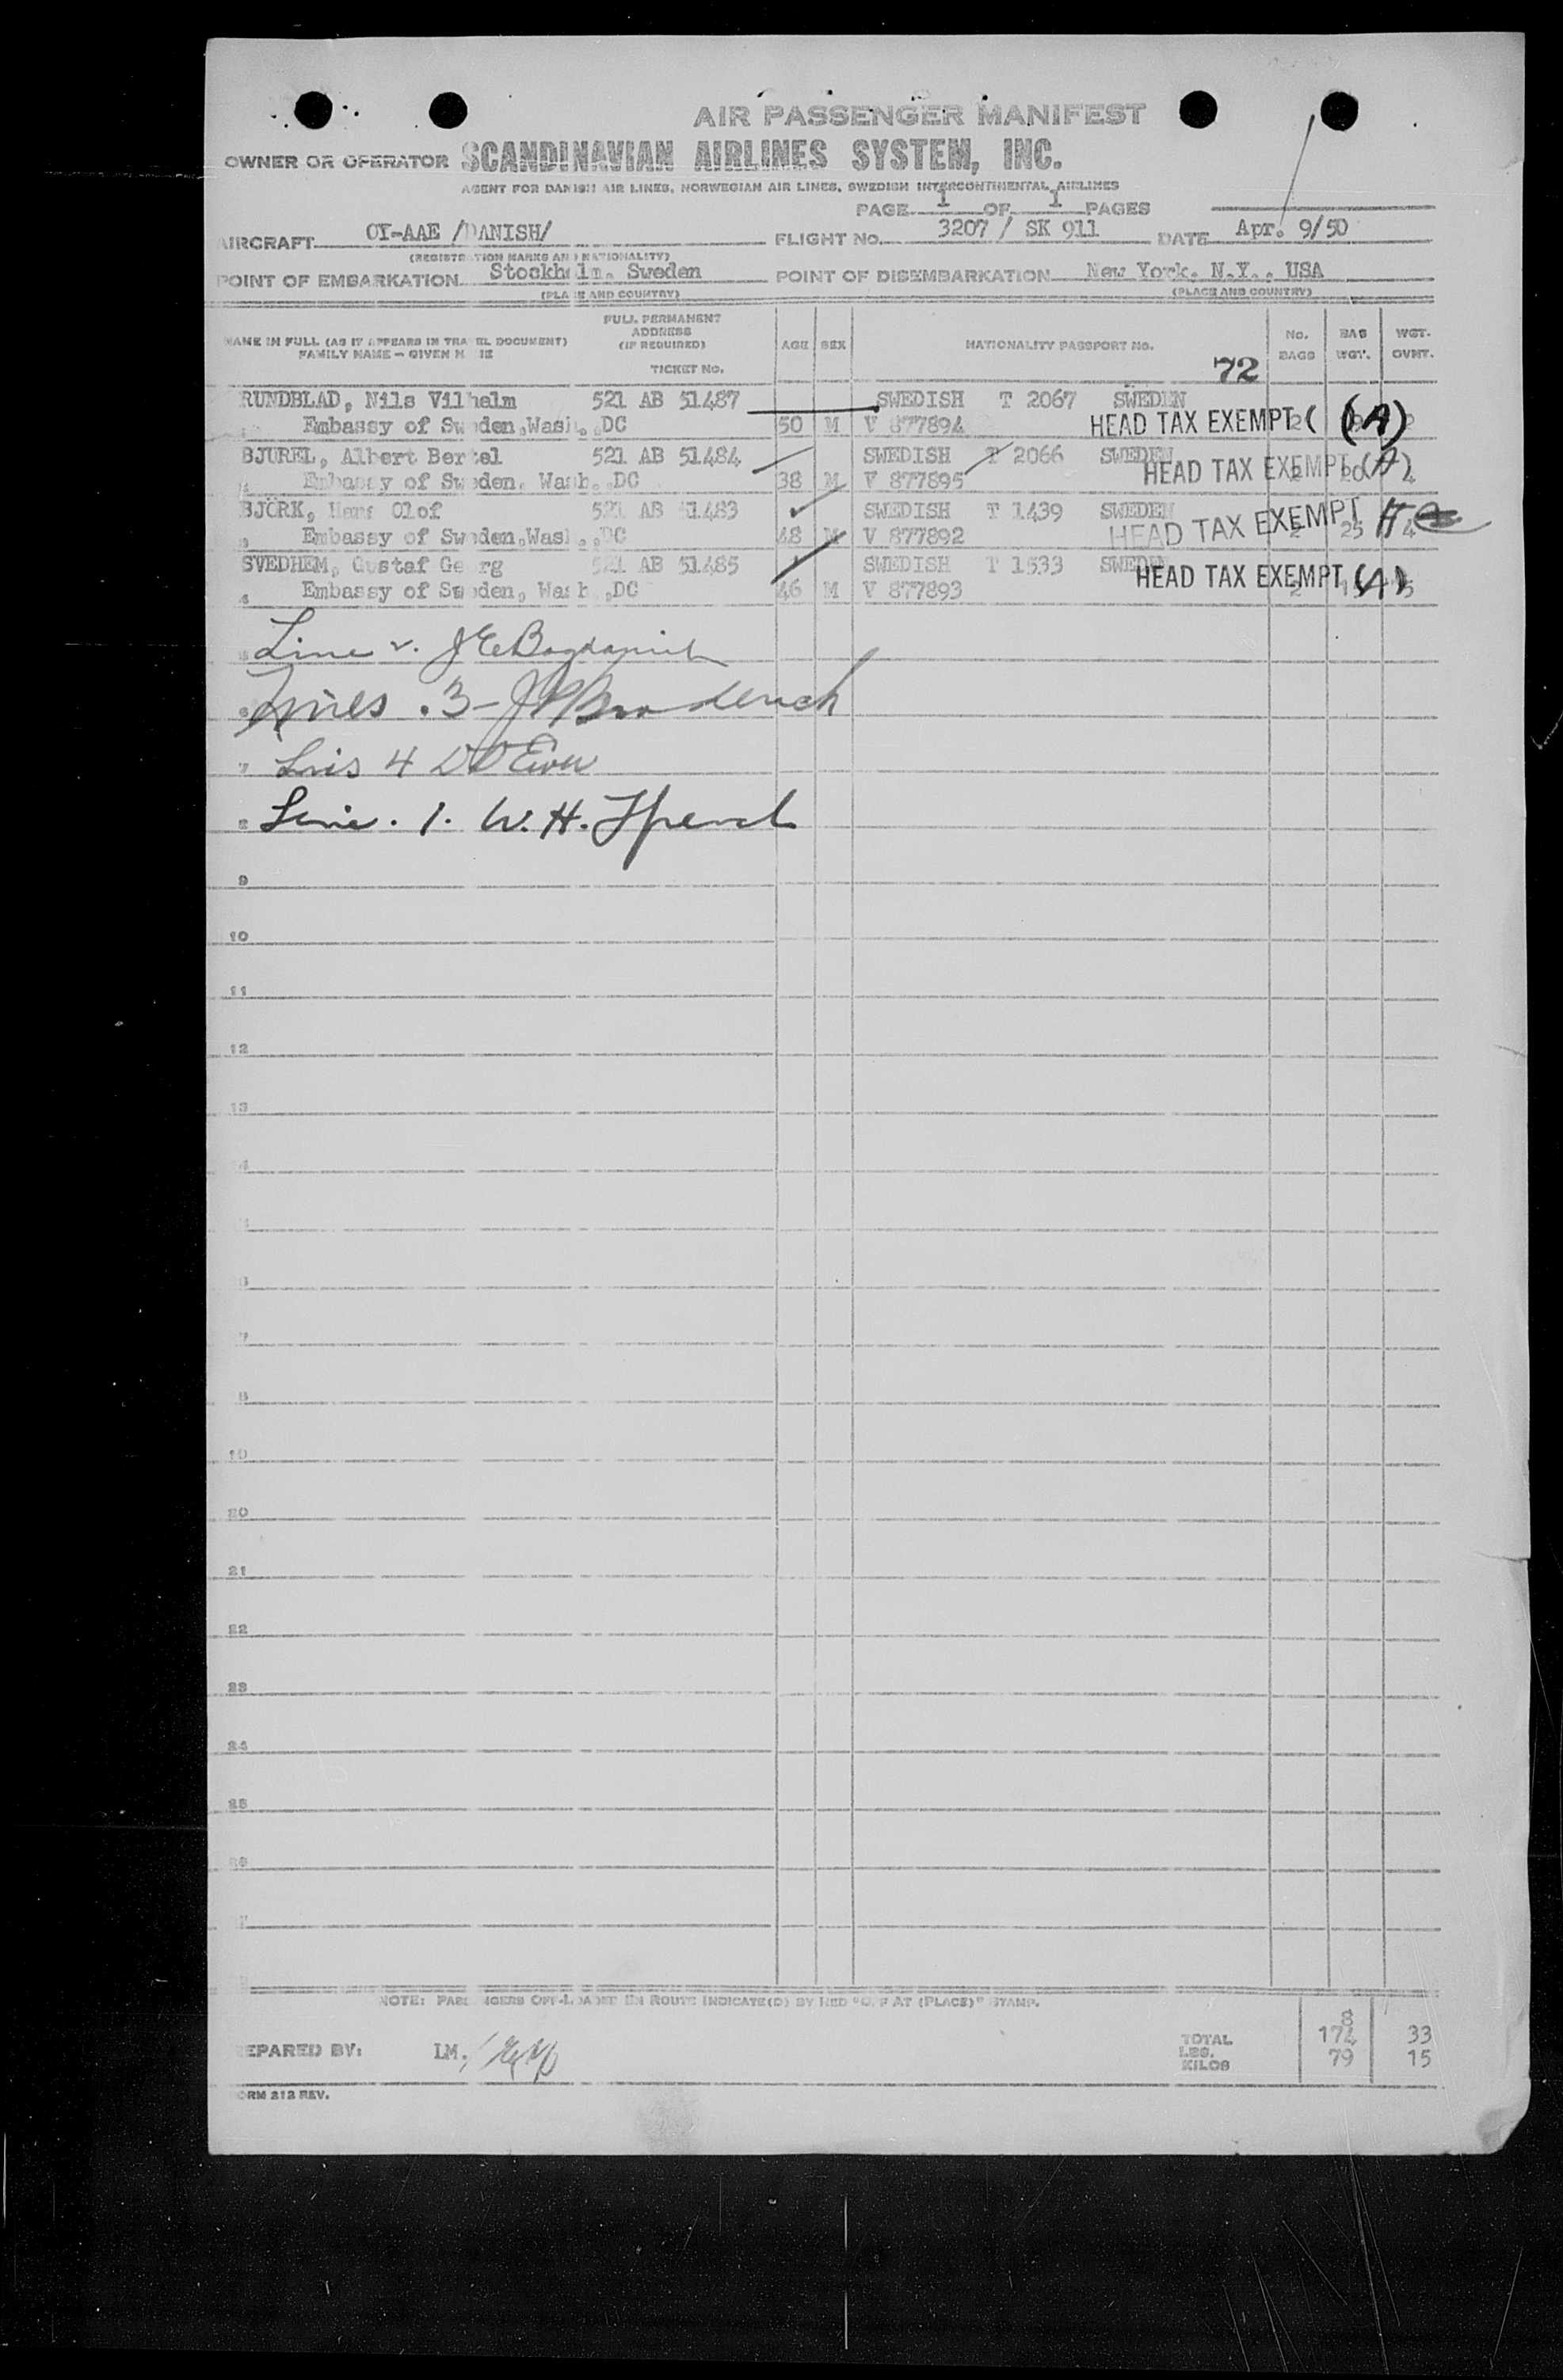 AIR PASSENGER MANIFEST
OWNER OR OPERATOR SCANDINAVIAN AIRLINES SYSTEM, INC.
AGENT FOR DANISH AIR LINES, NORWEGIAN AIR LINES, SWEDISH INTERCONTINENTAL AIRLINES
PAGE 1 OF 1 PAGES
AIRCRAFT OY-AAE /DANISH/ FLIGHT No. 3207 / SK 911 DATE Apr. 9/50
(REGISTRATION MARKS AND NATIONALITY)
POINT OF EMBARKATION Stockholm, Sweden POINT OF DISEMBARKATION New York, N.Y., USA
(PLACE AND COUNTRY) (PLACE AND COUNTRY)
NAME IN FULL (AS IT APPEARS IN TRAVEL DOCUMENT) FAMILY NAME - GIVEN NAME FULL PERMANENT ADDRESS (IF REQUIRED) TICKET No. AGE SEX NATIONALITY PASSPORT No. No. BAGS BAG WGT. WGT. OVWT.
72
RUNDBLAD, Nils Vilhelm 521 AB 51487 SWEDISH T 2067 SWEDEN
Embassy of Sweden, Wash., DC 50 M V 877894 HEAD TAX EXEMPT 2 (A) 2
BJUREL, Albert Bertel 521 AB 51484 SWEDISH T 2066 SWEDEN
Embassy of Sweden, Wash., DC 38 M V 877895 HEAD TAX EXEMPT 2 20 (A) 4
BJÖRK, Hans Olof 521 AB 51483 SWEDISH T 1439 SWEDEN
Embassy of Sweden, Wash., DC 48 M V 877892 HEAD TAX EXEMPT 2 25 4
SVEDHEM, Gustaf Georg 521 AB 51485 SWEDISH T 1533 SWEDEN
Embassy of Sweden, Wash., DC 46 M V 877893 HEAD TAX EXEMPT (A) 2 5
Line
.3-
4
Line . 1. W.H.
9
10
11
12
13
20
21
22
23
24
25
26
NOTE: PASSENGERS OFF-LOADED EN ROUTE INDICATE(D) BY RED "OFF AT (PLACE)" STAMP.
8
TOTAL
PREPARED BY: LM. LBS. 174 33
KILOS 79 15
FORM 212 REV.